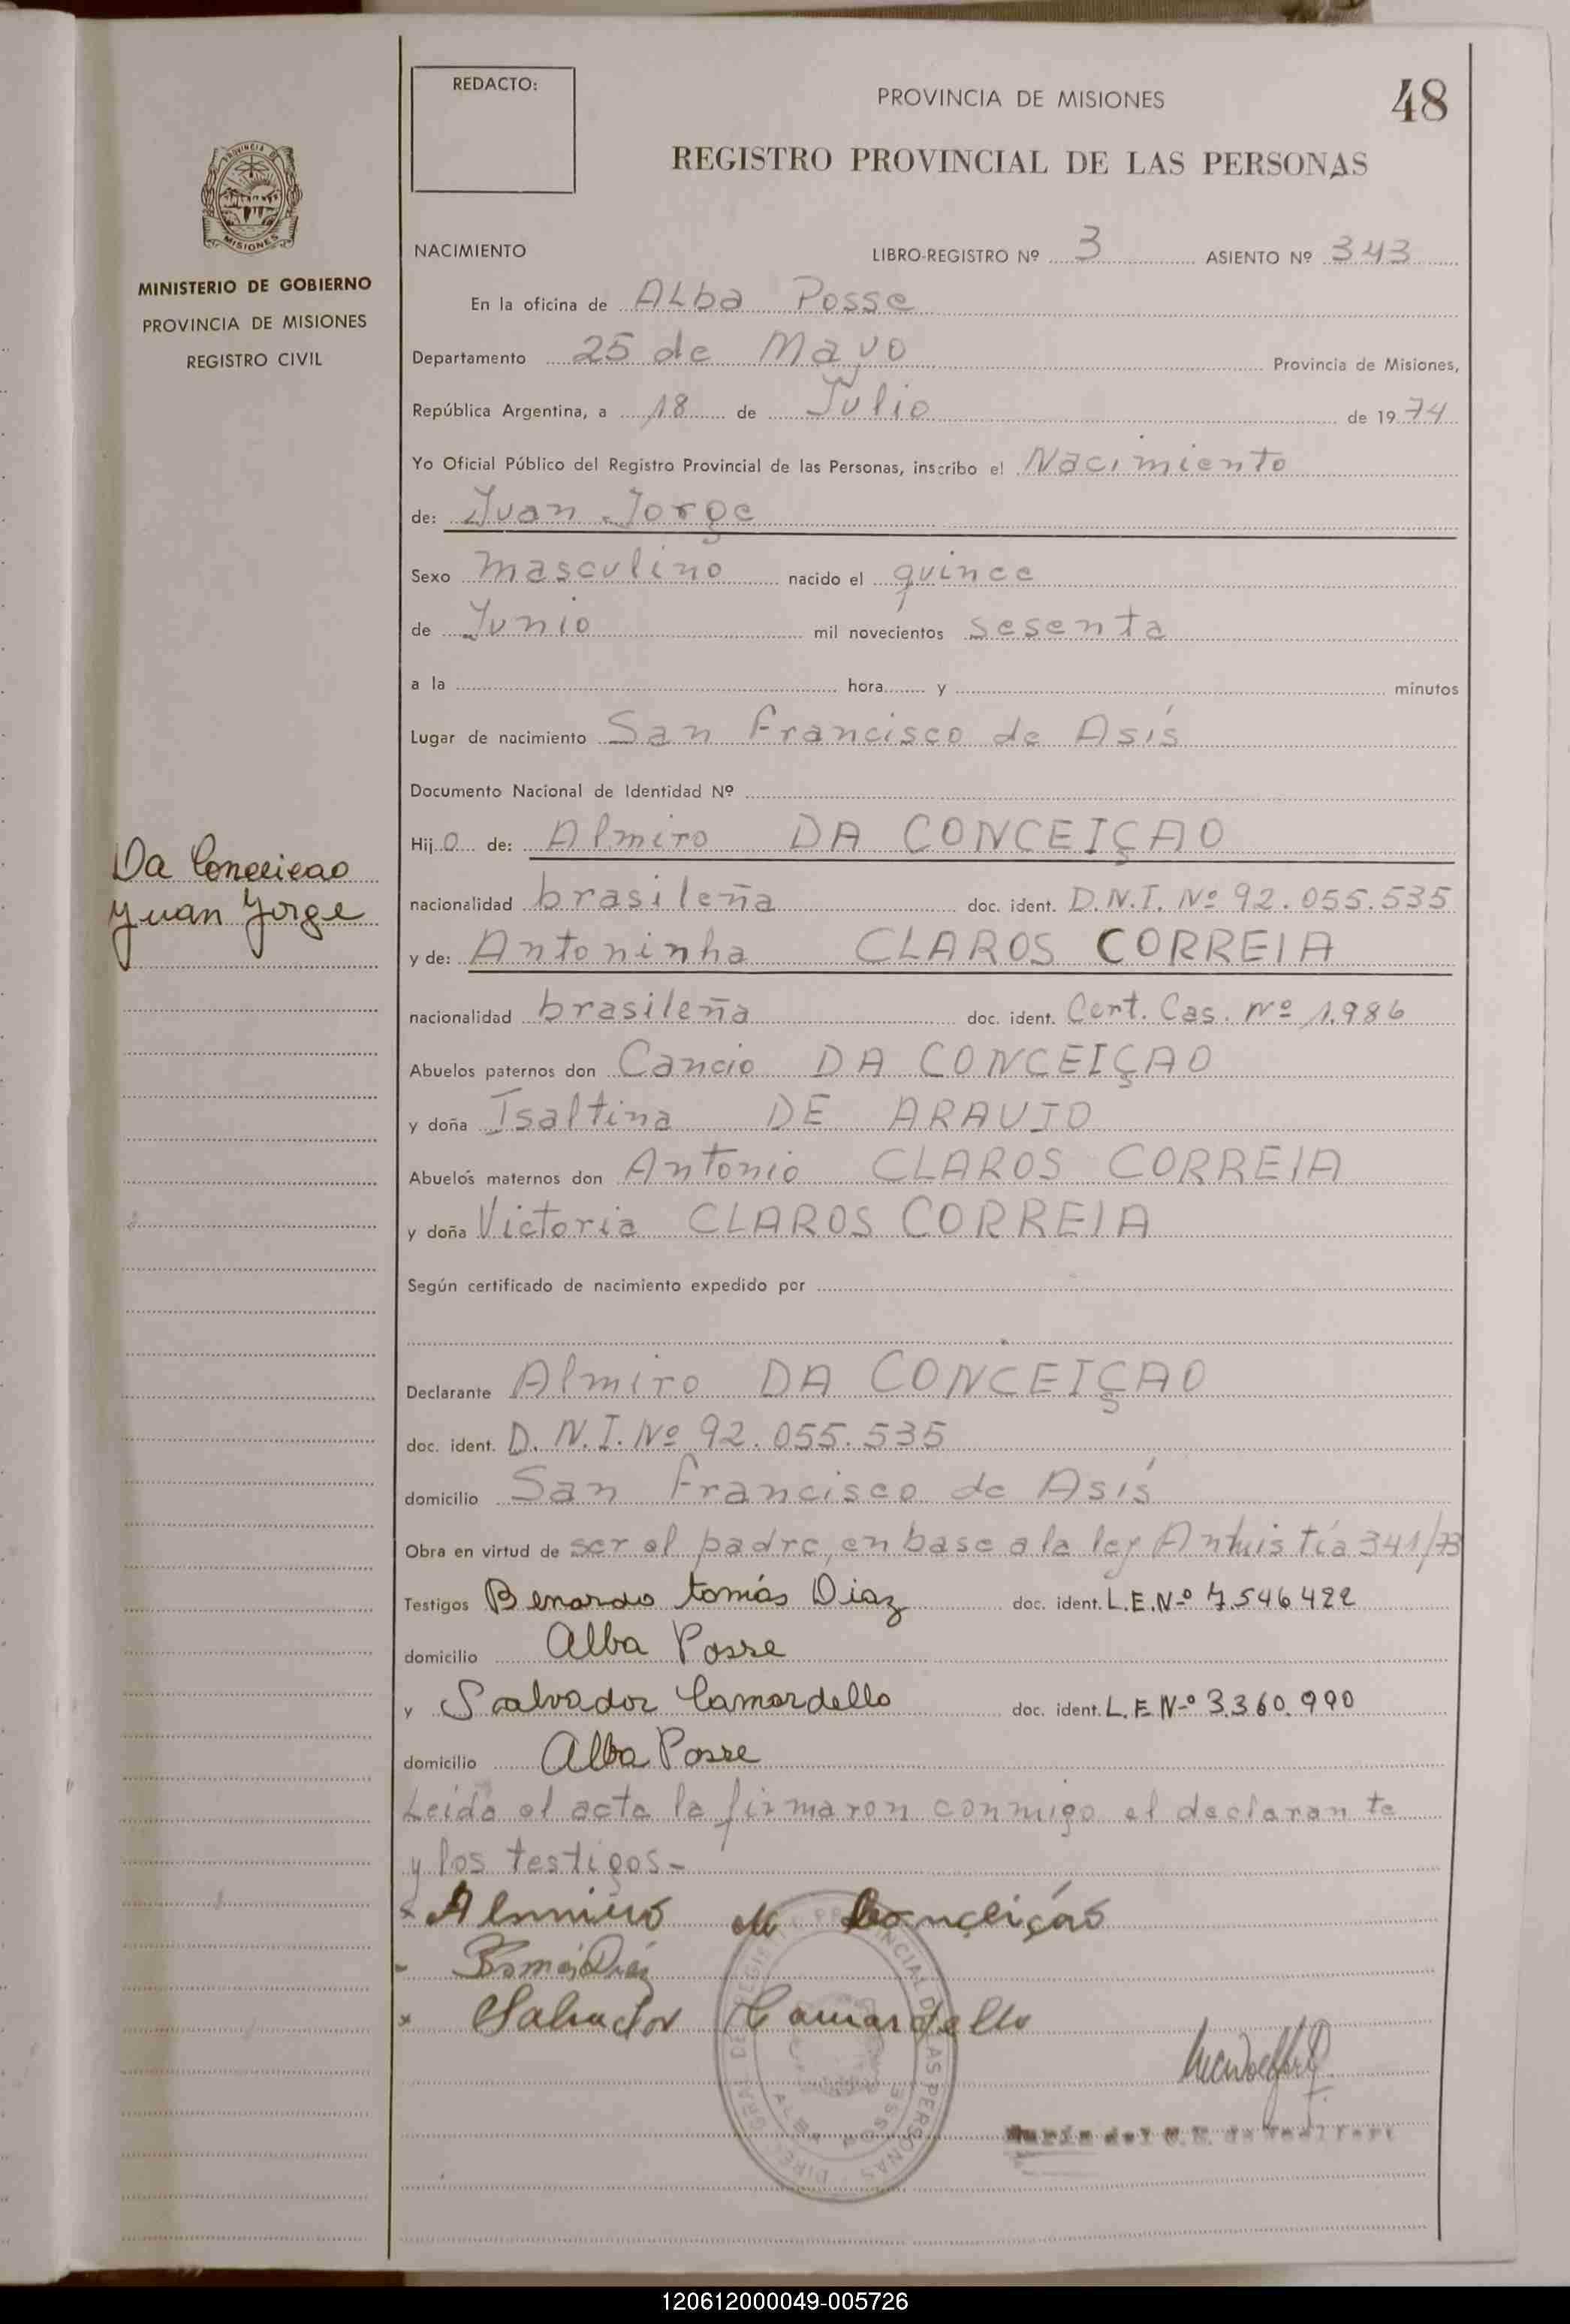 REDACTO:
PROVINCIA DE MISIONES
48
REGISTRO PROVINCIAL DE LAS PERSONAS
PROVINCIA DE
MISIONES
MINISTERIO DE GOBIERNO
PROVINCIA DE MISIONES
REGISTRO CIVIL
NACIMIENTO LIBRO-REGISTRO Nº 3 ASIENTO Nº 343
En la oficina de Alba Posse
Departamento 25 de Mayo Provincia de Misiones,
República Argentina, a 18 de Julio de 1974
Yo Oficial Público del Registro Provincial de las Personas, inscribo el Nacimiento
de: Juan Jorge
Sexo masculino nacido el quince
de Junio mil novecientos sesenta
a la hora y minutos
Lugar de nacimiento San Francisco de Asís
Documento Nacional de Identidad Nº
Da Conceicao
Juan Jorge
Hijo de: Almiro DA CONCEIÇAO
nacionalidad brasileña doc. ident. D.N.I. Nº 92.055.535
y de: Antoninha CLAROS CORREIA
nacionalidad brasileña doc. ident. Cert. Cas. Nº 1.986
Abuelos paternos don Cancio DA CONCEIÇAO
y doña Isaltina DE ARAUJO
Abuelos maternos don Antonio CLAROS CORREIA
y doña Victoria CLAROS CORREIA
Según certificado de nacimiento expedido por
Declarante Almiro DA CONCEIÇAO
doc. ident. D.N.I. Nº 92.055.535
domicilio San Francisco de Asís
Obra en virtud de ser el padre, en base a la ley Amnistía 341/73
Testigos Benardo tomás Diaz doc. ident. L.E.Nº 7.546.422
domicilio Alba Posse
y Salvador Camardello doc. ident. L.E Nº 3.360.990
domicilio Alba Posse
Leída el acta la firmaron conmigo el declarante
y los testigos-
Almiro da Conçeiçáo
BTomás Diáz
Salvador Camardello
DIREC. GRAL. DE REGISTRO PROVINCIAL DE LAS PERSONAS
ALBA POSSE
María del C.
120612000049-005726